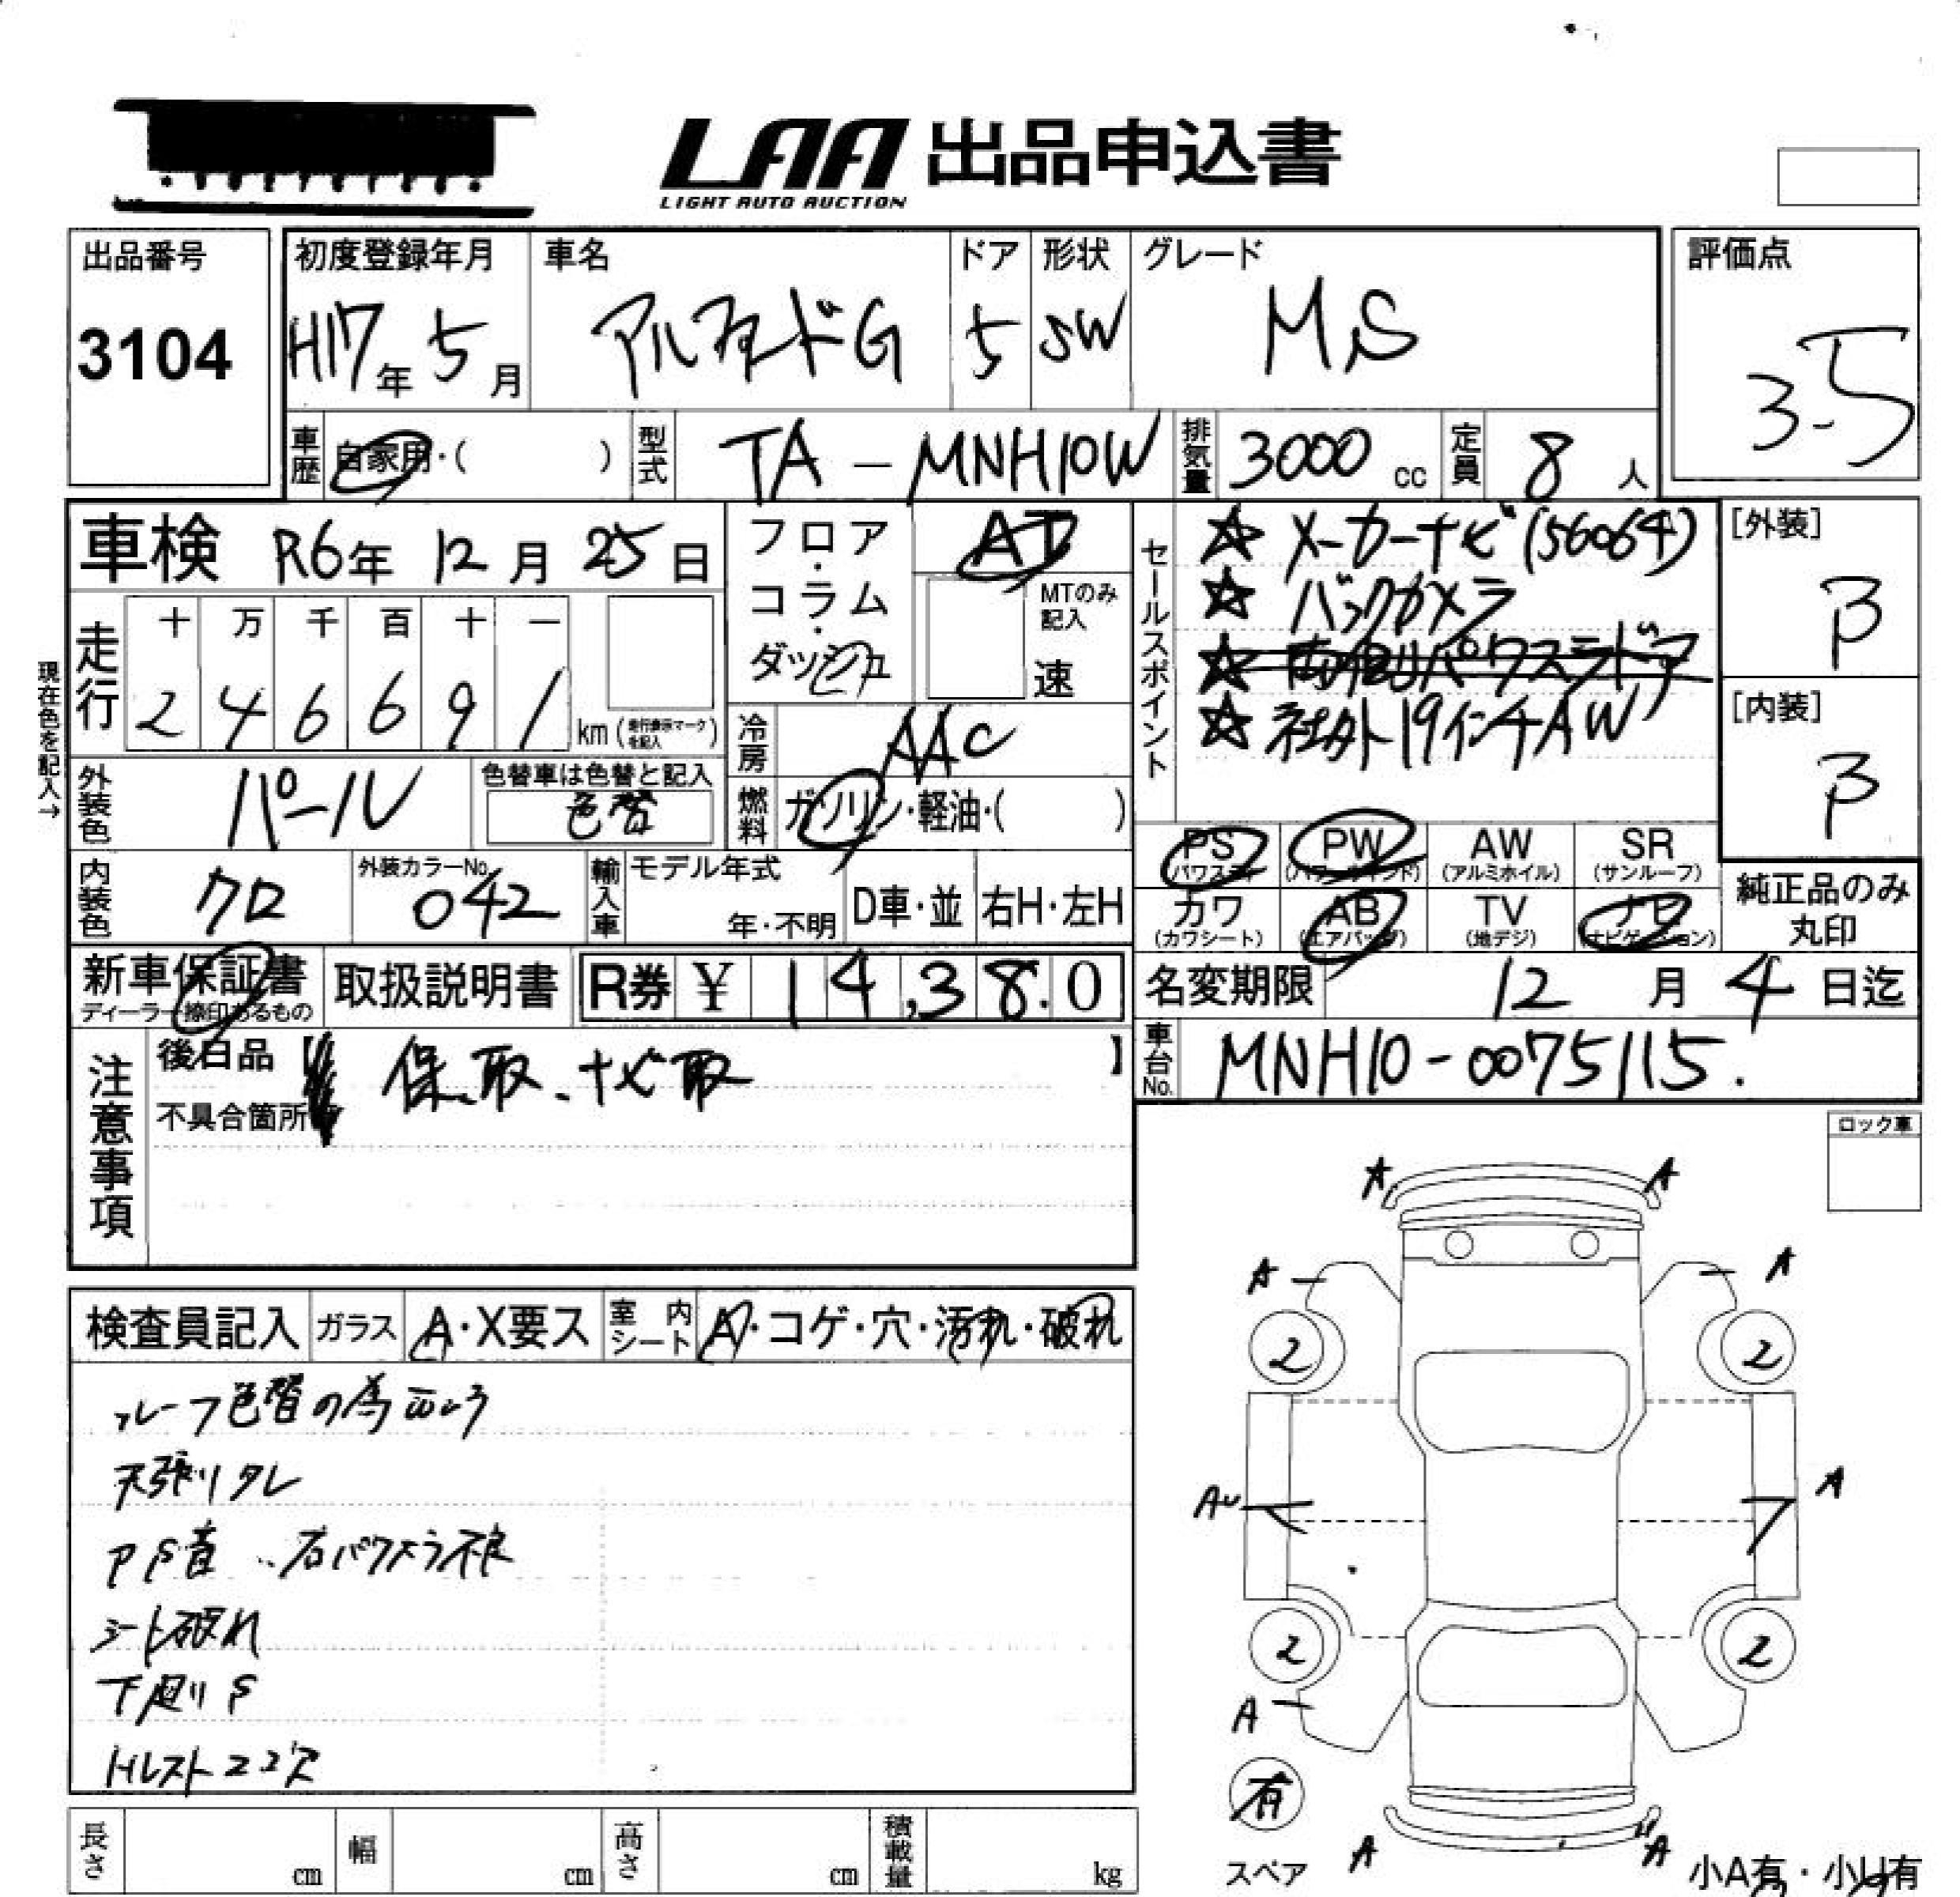 LAA 出品申込書
LIGHT AUTO AUCTION
出品番号
3104
初度登録年月
H17年 5月
車名
アルファードG
ドア
5
形状
SW
グレード
MS
評価点
3.5
車歴
自家用・( )
型式
TA-MNH10W
排気量
3000 cc
定員
8 人
車検 R6年 12月 25日
フロア・コラム・ダッシュ
AT
MTのみ記入
速
セールスポイント
☆ メーカーナビ(56064)
☆ バックカメラ
☆ 両側パワスラドア
☆ 社外19インチAW
[外装]
B
[内装]
B
現在色を記入→
走行
十 万 千 百 十 一
2 4 6 6 9 1 km (走行表示マークを記入)
冷房
AAC
外装色
パール
色替車は色替と記入
色替
燃料
ガソリン・軽油・( )
内装色
クロ
外装カラーNo.
042
輸入車
モデル年式
年・不明
D車・並
右H・左H
PS (パワステ)
PW
AW (アルミホイル)
SR (サンルーフ)
カワ (カワシート)
AB (エアバッグ)
TV (地デジ)
ナビ (ナビゲーション)
純正品のみ丸印
新車保証書
ディーラー捺印あるもの
取扱説明書
R券 ¥ 14,380
名変期限
12月 4日迄
車台No.
MNH10-0075115.
注意事項
後日品【 保.取.ナビ取 】
不具合箇所
ロック車
検査員記入
ガラス
A・X要ス
室内シート
A・コゲ・穴・汚れ・破れ
ルーフ色替の為
天張りタレ
PS音 右パワスラ不良
シート破れ
下廻りS
HレストココR
A A
A A
2 2
AU A
2 2
A
有
スペア
A A
小A有・小U有
長さ cm
幅 cm
高さ cm
積載量 kg